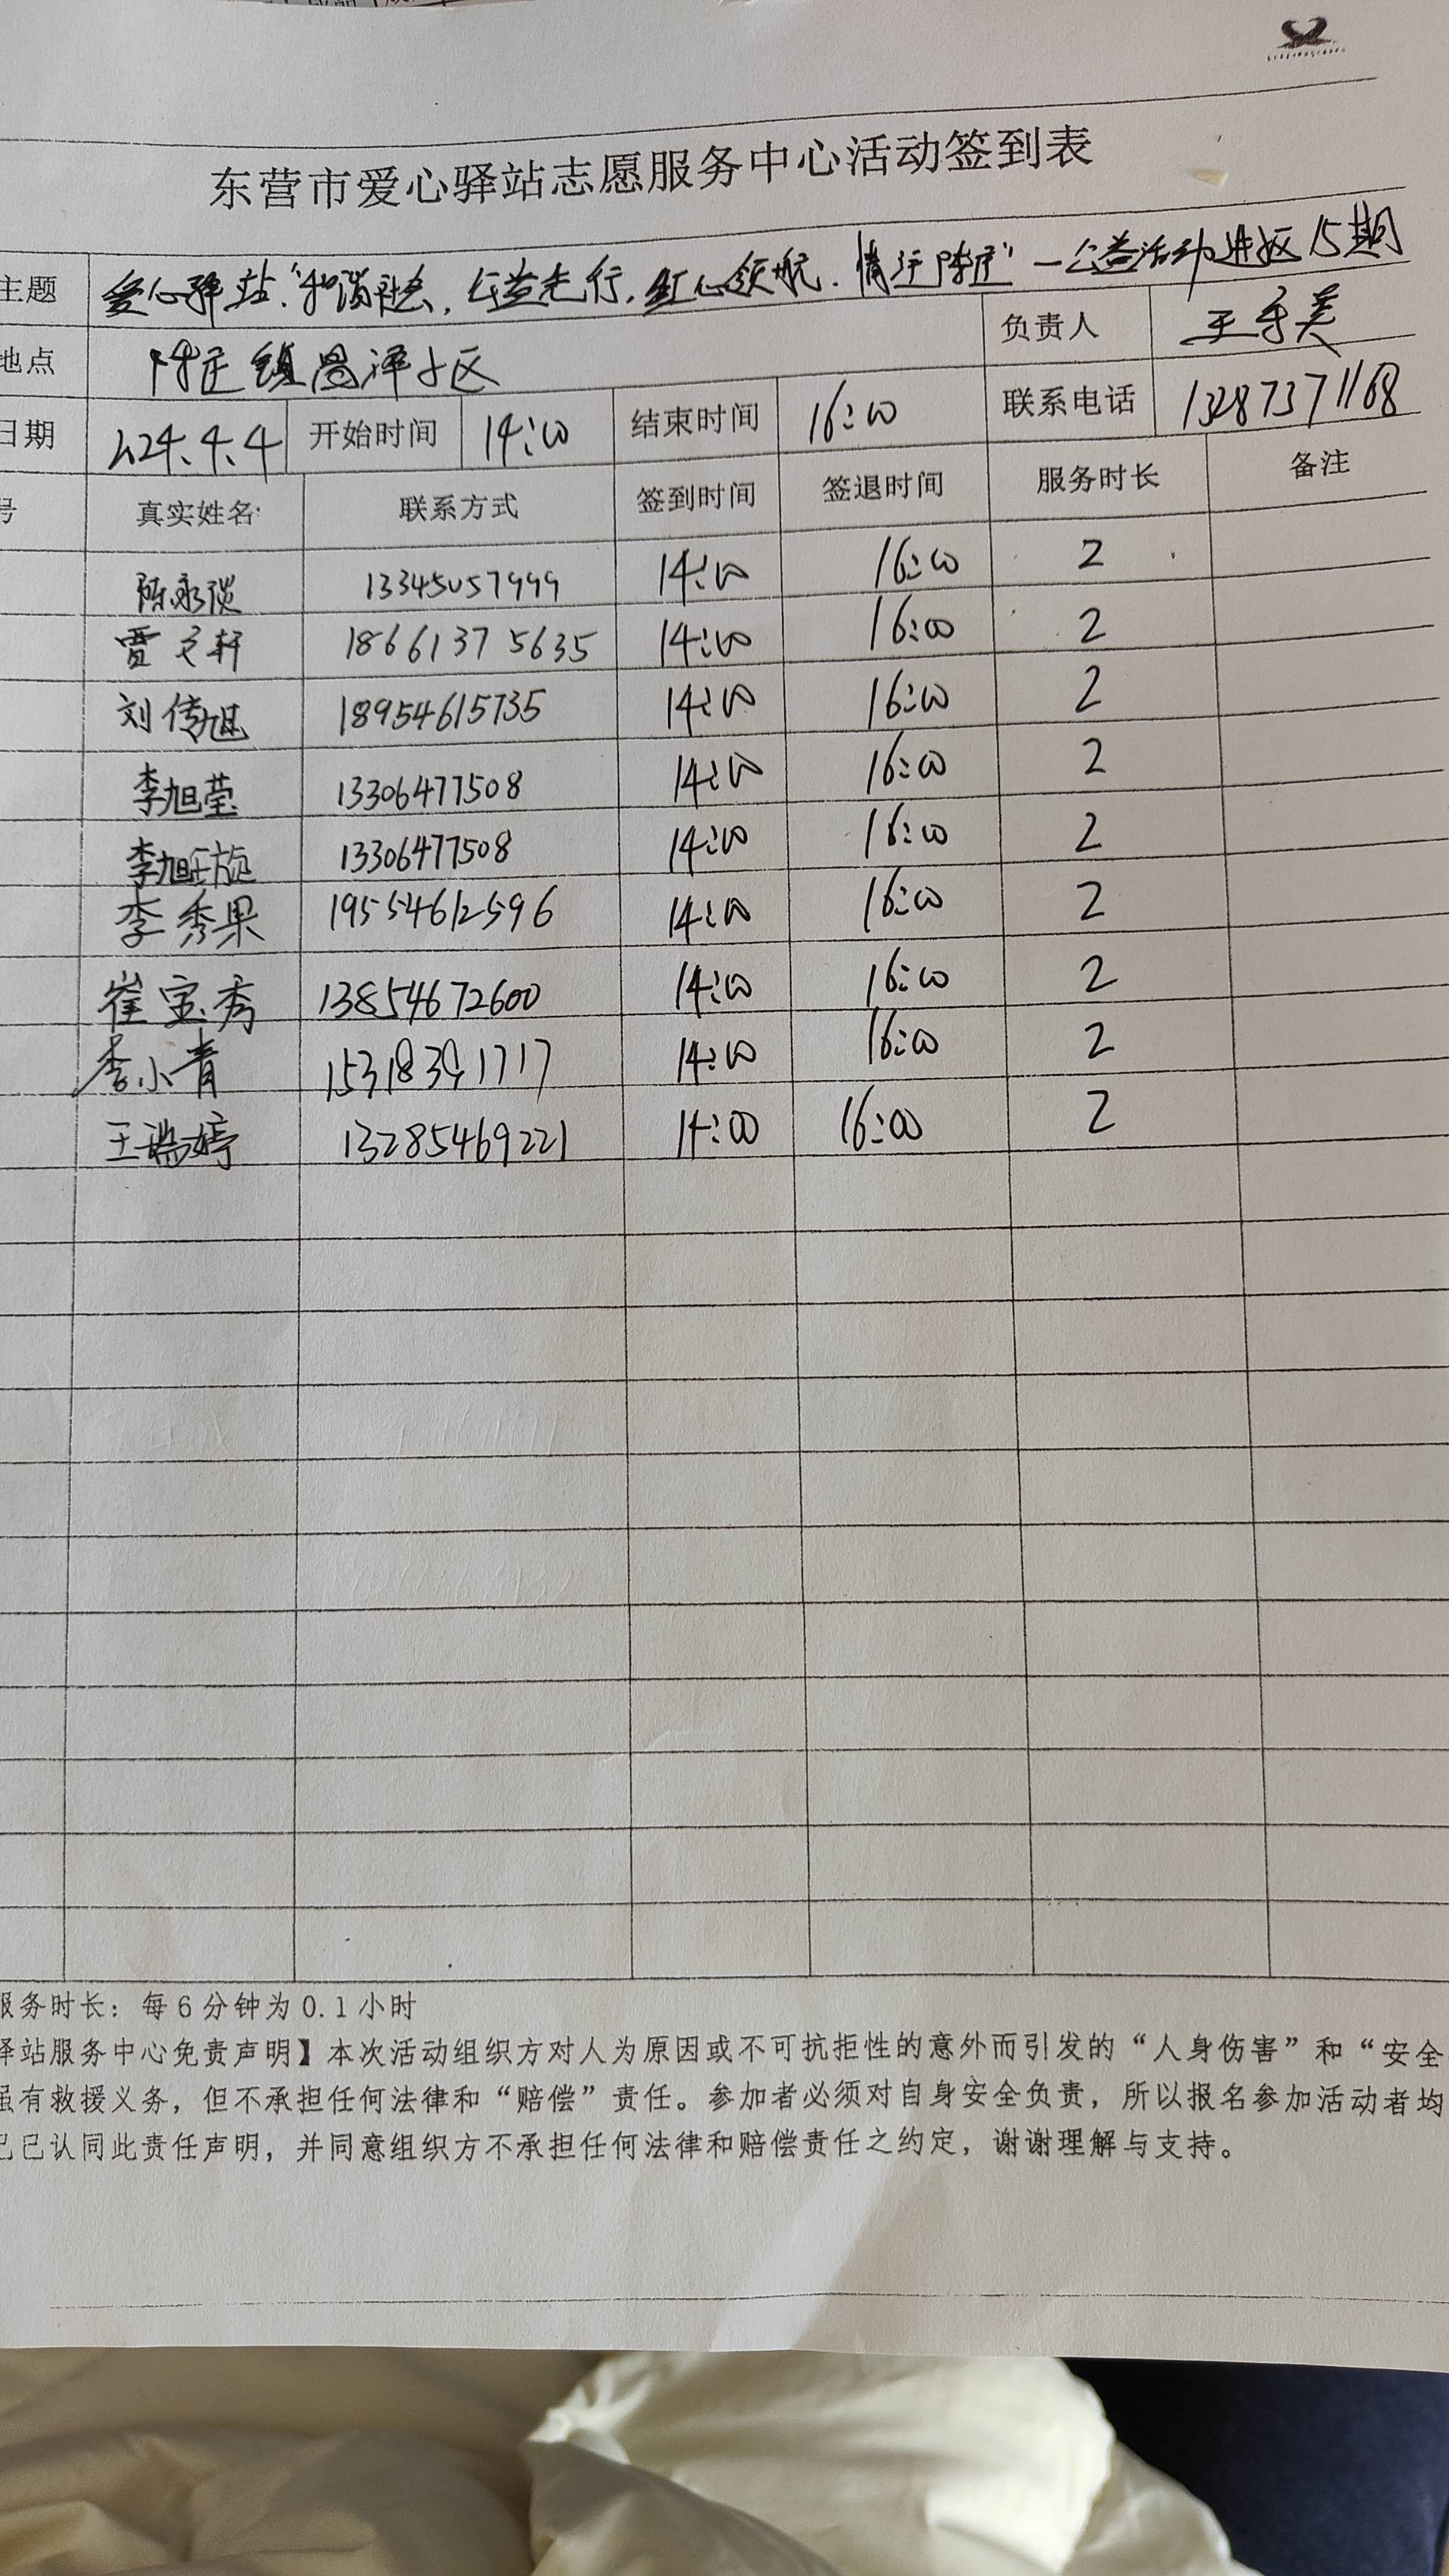 东营市爱心驿站志愿服务中心活动签到表
主题 爱心驿站."和谐社会,公益先行,红心领航.情运陈庄"—公益活动进社区15期
地点 陈庄镇 小区 负责人 王 美
日期 2024.4.4 开始时间 14:00 结束时间 16:00 联系电话 13287371168
号 真实姓名 联系方式 签到时间 签退时间 服务时长 备注
陈永 13345057999 14:00 16:00 2
贾文轩 18661375635 14:00 16:00 2
刘传旭 18954615735 14:00 16:00 2
李旭莹 13306477508 14:00 16:00 2
李旭旋 13306477508 14:00 16:00 2
李秀果 19554612596 14:00 16:00 2
崔宝秀 13854672600 14:00 16:00 2
李小青 15318391717 14:00 16:00 2
王瑞婷 13285469221 14:00 16:00 2
服务时长:每6分钟为0.1小时
驿站服务中心免责声明】本次活动组织方对人为原因或不可抗拒性的意外而引发的“人身伤害”和“安全
虽有救援义务,但不承担任何法律和“赔偿”责任。参加者必须对自身安全负责,所以报名参加活动者均
己已认同此责任声明,并同意组织方不承担任何法律和赔偿责任之约定,谢谢理解与支持。